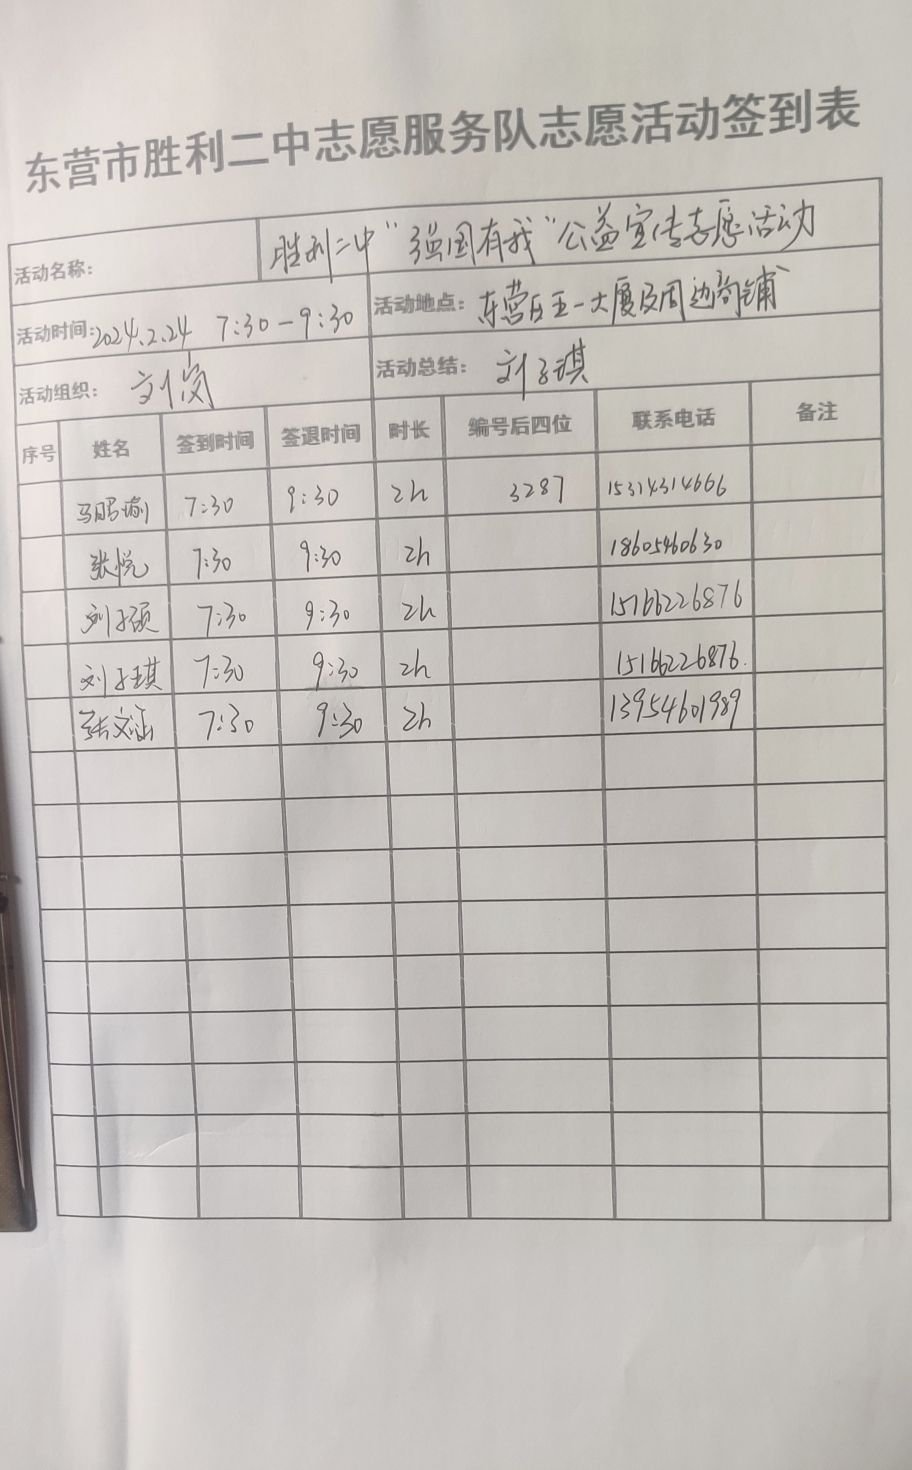 东营市胜利二中志愿服务队志愿活动签到表
活动名称: 胜利二中“强国有我”公益宣传志愿活动
活动时间: 2024.2.24 7:30-9:30 活动地点: 东营 大厦及周边商铺
活动组织: 刘岗 活动总结: 刘子琪
序号 姓名 签到时间 签退时间 时长 编号后四位 联系电话 备注
马 瑜 7:30 9:30 2h 3287 15314314666
张悦 7:30 9:30 2h 18605460630
刘子硕 7:30 9:30 2h 15166226876
刘子琪 7:30 9:30 2h 15166226876.
张文涵 7:30 9:30 2h 13954601989